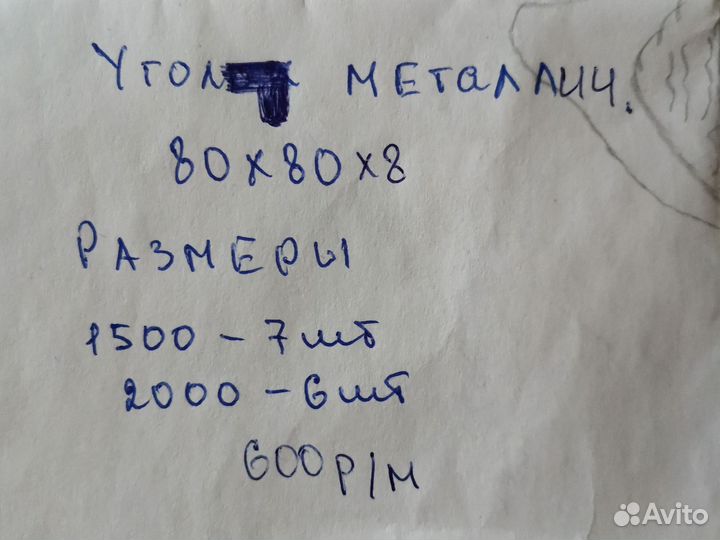 металлич.
80х80х8
Размеры
1500 – 7 шт
2000 – 6 шт
600 р/м
Avito